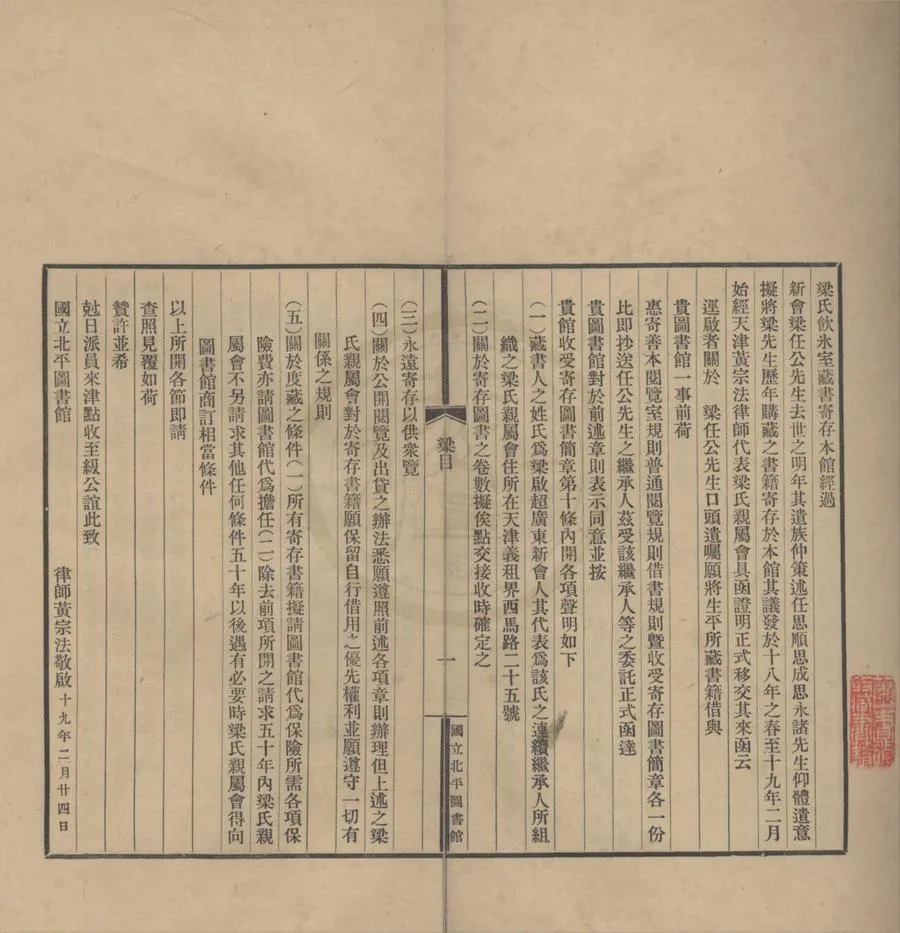 梁氏飲氷室藏書寄存本館經過
新會梁任公先生去世之明年其遺族仲策述任思順思成思永諸先生仰體遺意
擬將梁先生歷年購藏之書籍寄存於本館其議發於十八年之春至十九年二月
始經天津黃宗法律師代表梁氏親屬會具函證明正式移交其來函云
逕啟者關於　梁任公先生口頭遺囑願將生平所藏書籍借與
貴圖書館一事前荷
惠寄善本閱覽室規則普通閱覽規則借書規則曁收受寄存圖書簡章各一份
比即抄送任公先生之繼承人茲受該繼承人等之委託正式函達
貴圖書館對於前述章則表示同意並按
貴館收受寄存圖書簡章第十條內開各項聲明如下
（一）藏書人之姓氏爲梁啟超廣東新會人其代表爲該氏之連續繼承人所組
織之梁氏親屬會住所在天津義租界西馬路二十五號
（二）關於寄存圖書之卷數擬俟點交接收時確定之
梁目
一
國立北平圖書館
（三）永遠寄存以供衆覽
（四）關於公開閱覽及出貸之辦法悉願遵照前述各項章則辦理但上述之梁
氏親屬會對於寄存書籍願保留自行借用之優先權利並願遵守一切有
關係之規則
（五）關於庋藏之條件（一）所有寄存書籍擬請圖書館代爲保險所需各項保
險費亦請圖書館代爲擔任（二）除去前項所開之請求五十年內梁氏親
屬會不另請求其他任何條件五十年以後遇有必要時梁氏親屬會得向
圖書館商訂相當條件
以上所開各節即請
查照見覆如荷
贊許並希
尅日派員來津點收至級公誼此致
國立北平圖書館　律師黃宗法敬啟 十九年二月廿四日